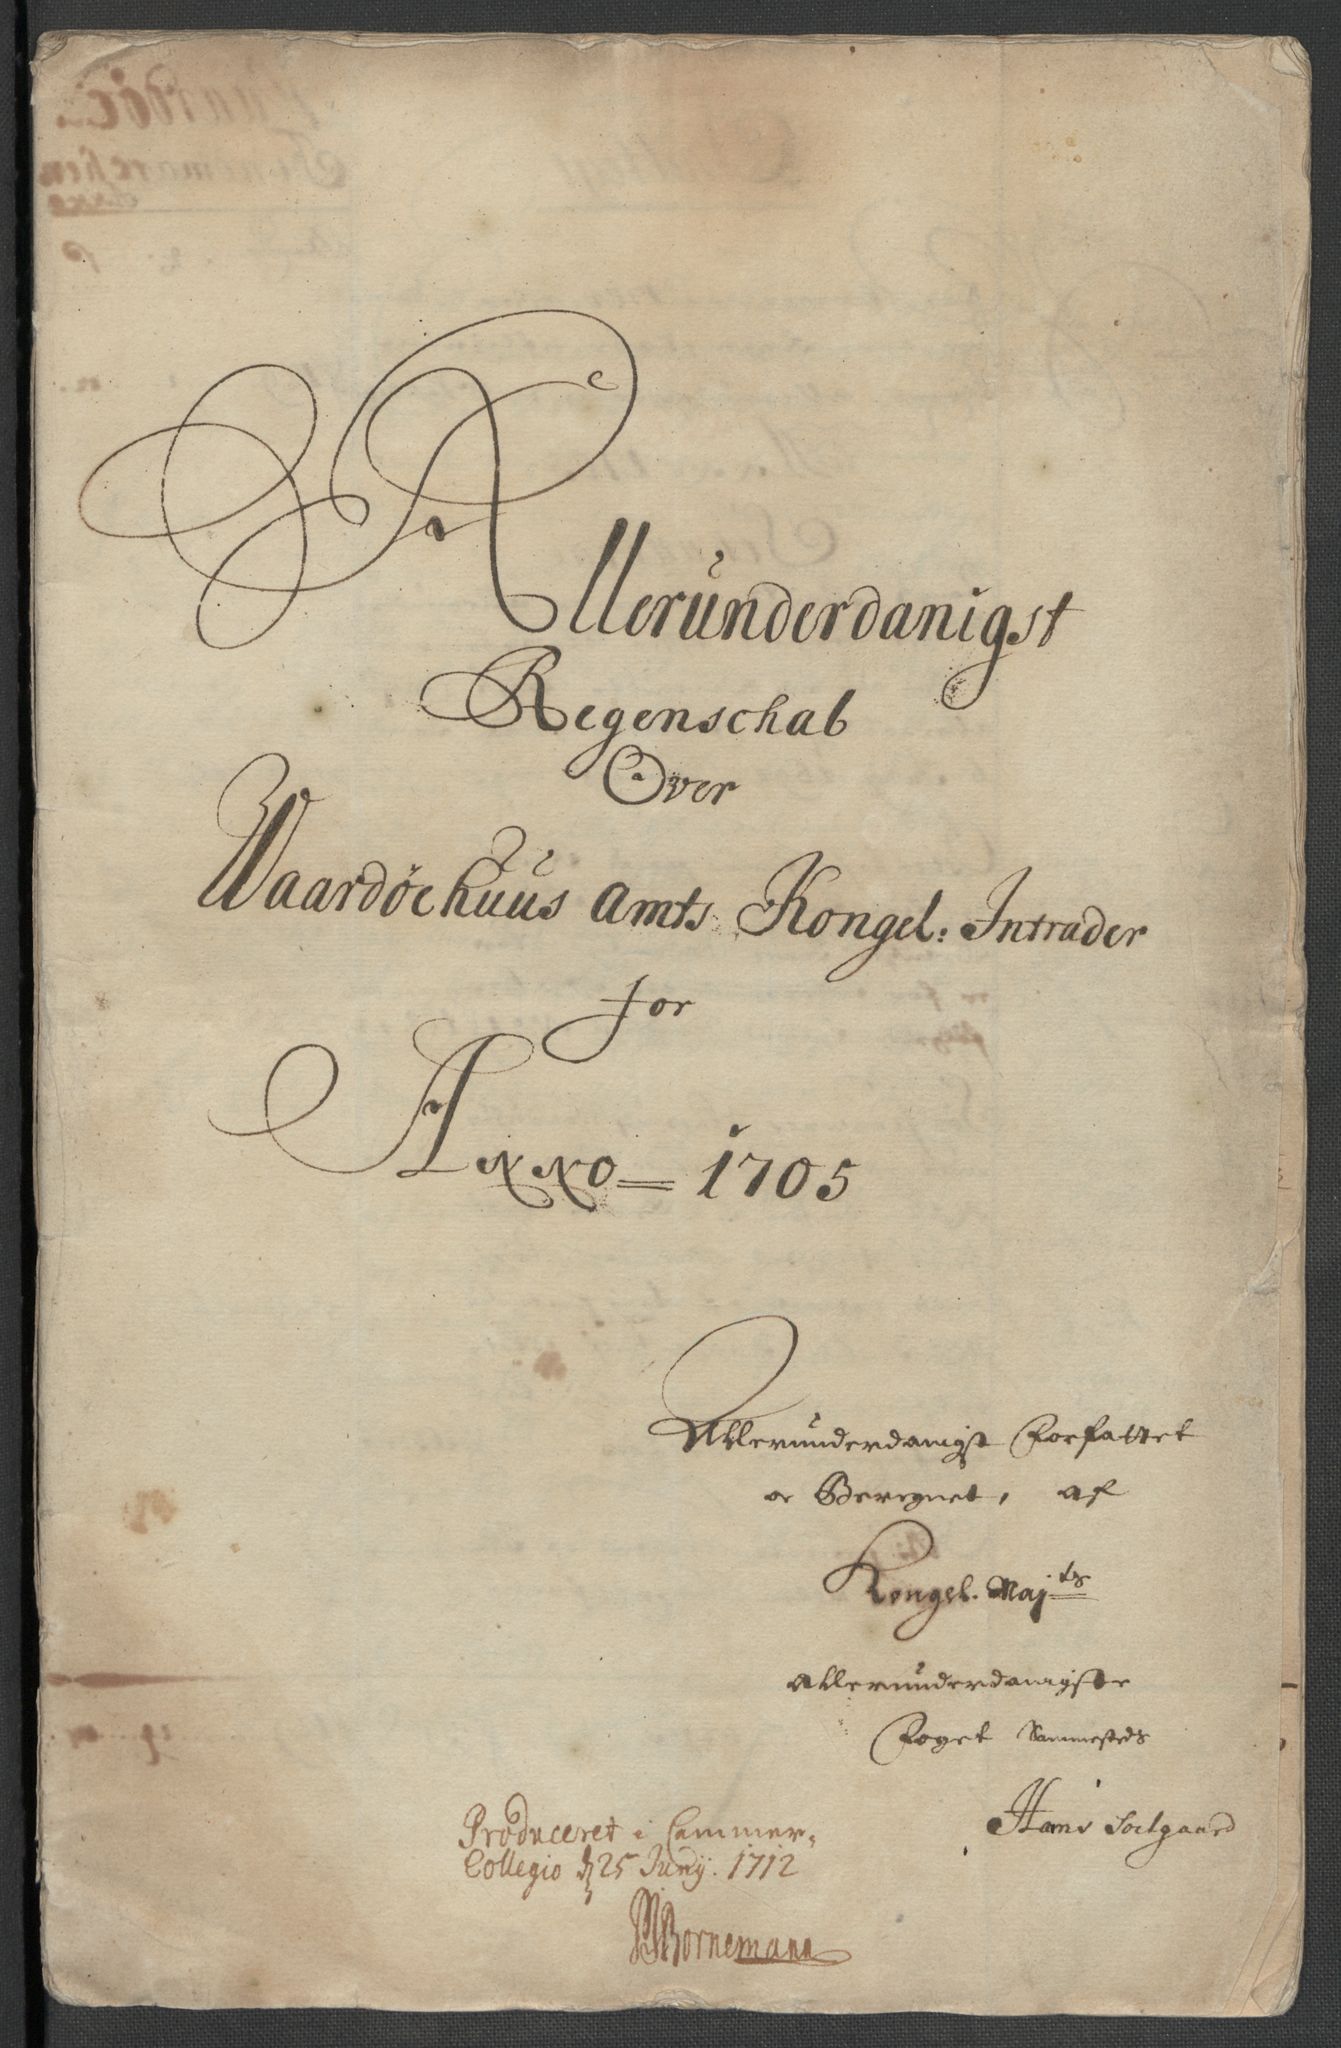 Allerunderdanigst
Regenschab
Over
Waardøehuus Amts Kongel: Intrader
for
Anno 1705
Allerunderdanigst Forfattet
oc Beregnet, af
Kongel. Maj ts
allerunderdanigste
Foget Sammesteds
Hans Soelgaard
Produceret i Cammer-
Collegio d 25 Junij. 1712
Bornemann